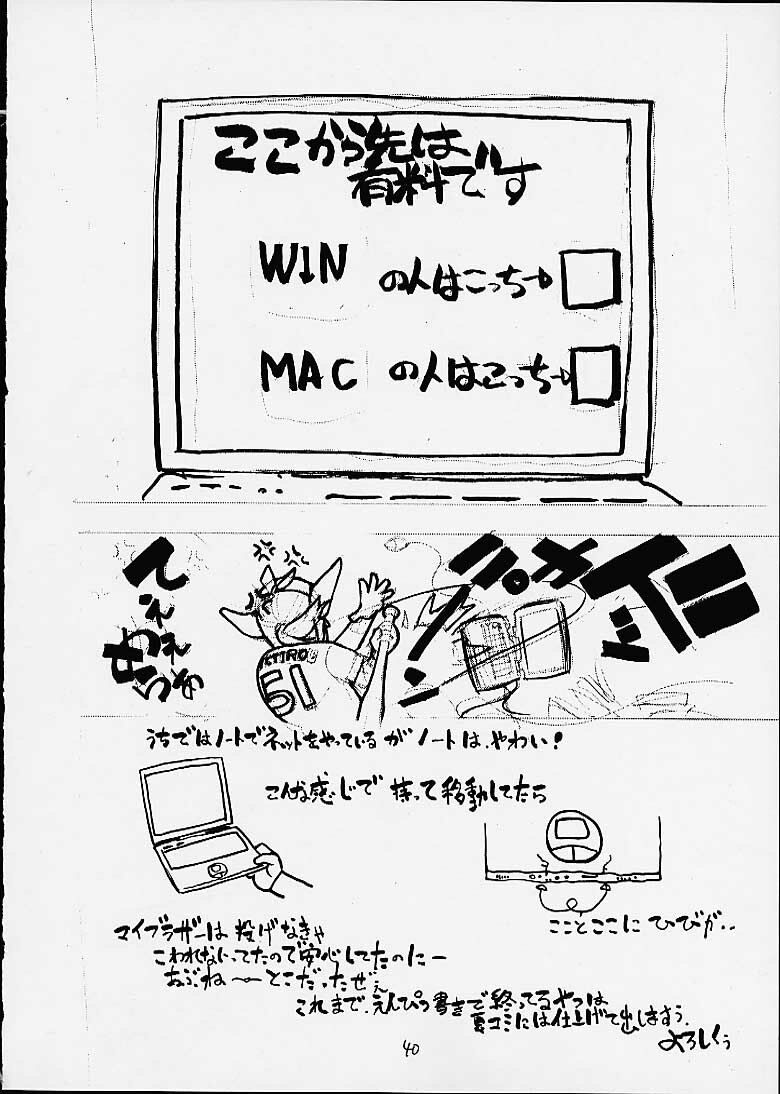 ここから先は
有料です
WIN の人はこっち→
MAC の人はこっち→
バカイニ
てぇ
めぇれぇ
らぁ
ICTIRO
51
うちではノートでネットをやっているがノートは、やわい!
こんな感じで持って移動してたら
こことここにひびが..
マイブラザーは投げなきゃ
こわれないってたので安心してたのにー
あぶね〜とこだったぜぇ
これまで、えんぴつ書きで終ってるやつは
夏コミには仕上げて出しますぅ.
よろしくぅ
40